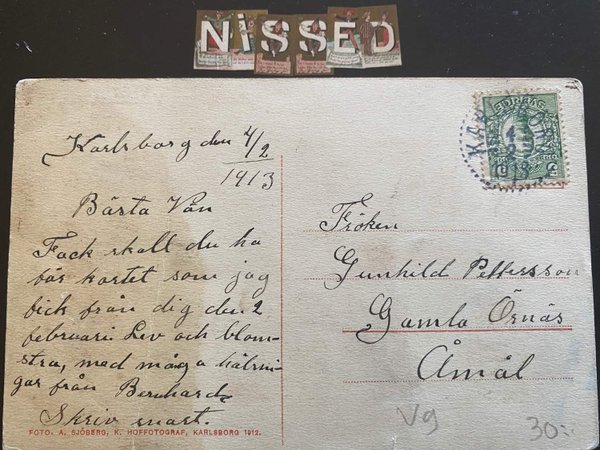 NiSSED
Karlsborg den 4/2
1913
Bästa Vän
Tack skall du ha
för kortet som jag
fick från dig den 2
februari. Lev och blom-
stra, med många hälsni-
gar från Bernhard.
Skriv snart.
FOTO. A. SJÖBERG, K. HOFFOTOGRAF, KARLSBORG 1912.
Fröken
Gunhild Pettersson
Gamla Örnäs
Åmål
Vg
30:-